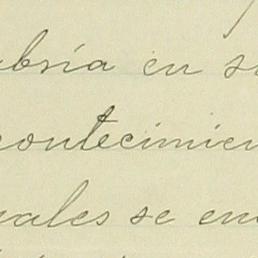 abría en s
contecimien
uales se en